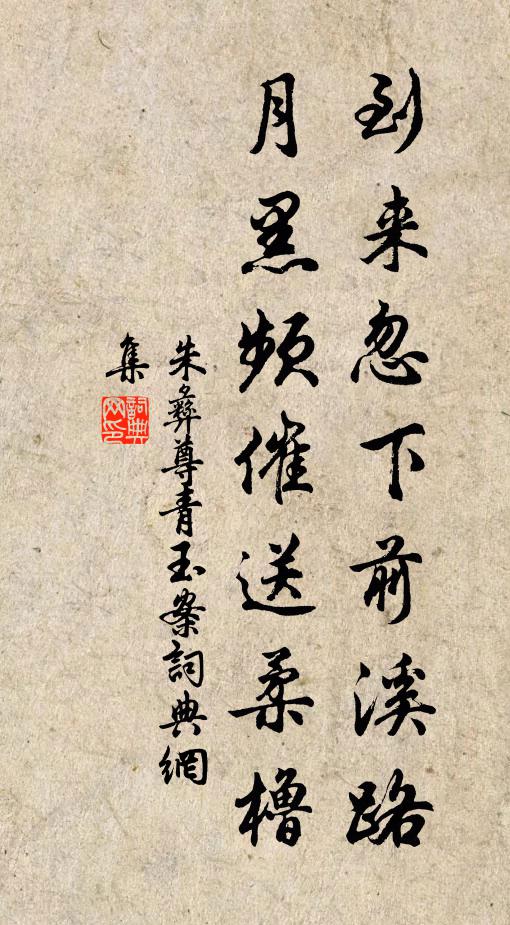 到来忽下前溪路
月黑频催送柔橹
朱彝尊青玉案詞典網
集
詞典
网印